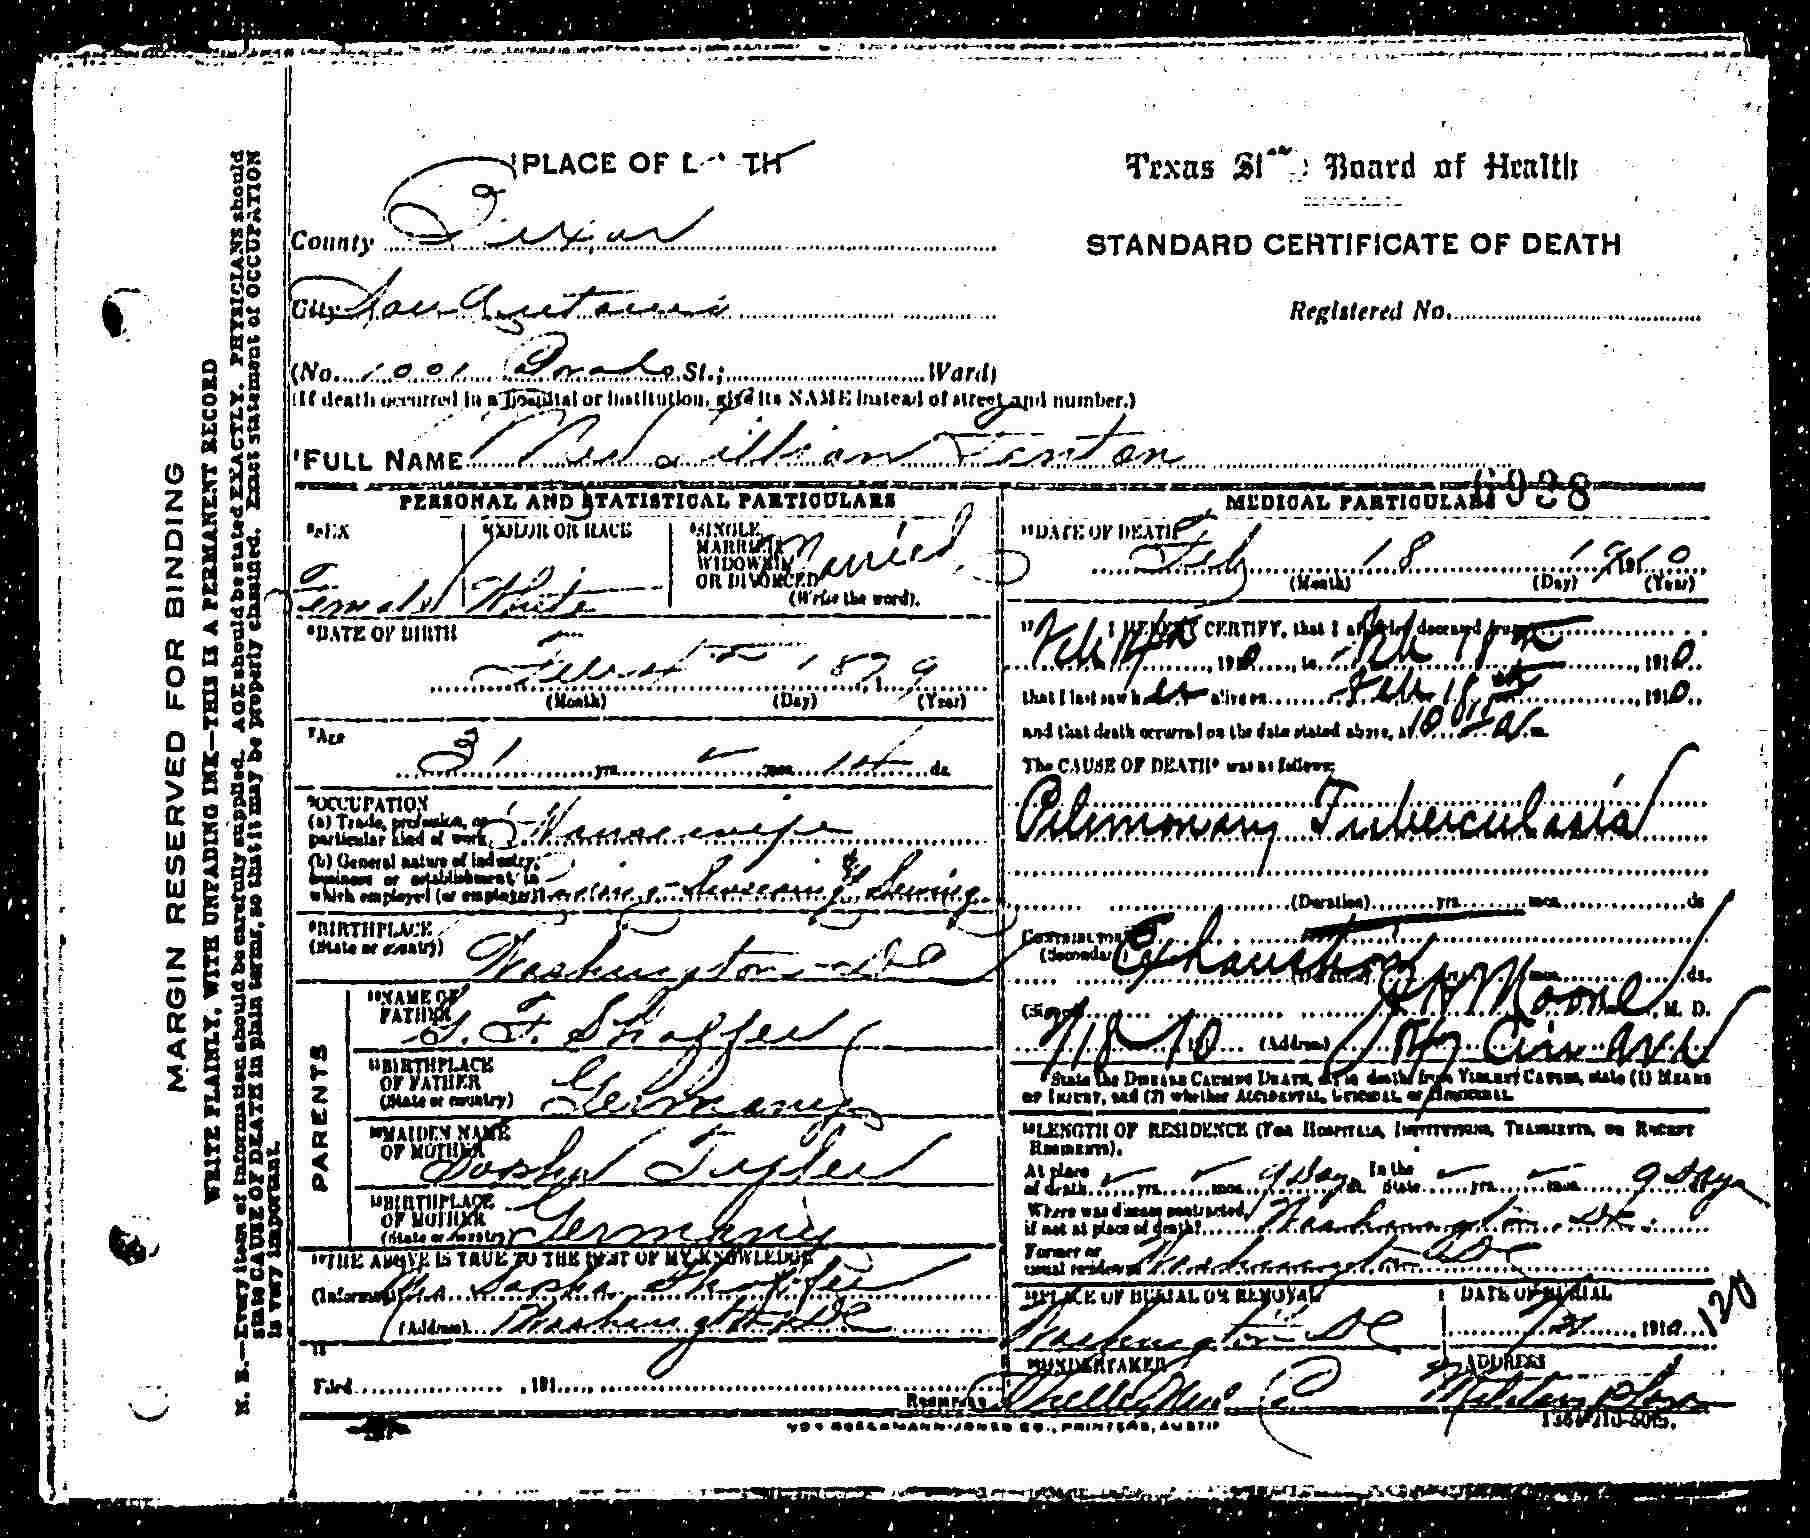 PLACE OF DEATH
Texas State Board of Health
STANDARD CERTIFICATE OF DEATH
County Bexar
City San Antonio
Registered No.
(No. 1001 St.; Ward)
(If death occurred in a hospital or institution, give its NAME instead of street and number.)
FULL NAME Mrs Lillian Fenton
6938
PERSONAL AND STATISTICAL PARTICULARS
SEX
Female
COLOR OR RACE
White
SINGLE
MARRIED
WIDOWED
OR DIVORCED
(Write the word).
Married
DATE OF BIRTH
1879
(Month) (Day) (Year)
AGE
31 yrs. mos. 14 ds.
OCCUPATION
(a) Trade, profession, or
particular kind of work
Housewife
(b) General nature of industry,
business or establishment in
which employed (or employer)
BIRTHPLACE
(State or country)
Washington DC
PARENTS
NAME OF
FATHER
F. Shaffer
BIRTHPLACE
OF FATHER
(State or country)
Germany
MAIDEN NAME
OF MOTHER
Sophia
BIRTHPLACE
OF MOTHER
(State or country)
Germany
THE ABOVE IS TRUE TO THE BEST OF MY KNOWLEDGE
(Informant) Mrs Sopha Shaffer
(Address) Washington DC
Filed , 191
MEDICAL PARTICULARS
DATE OF DEATH
Feb 18 1910
(Month) (Day) (Year)
17 I HEREBY CERTIFY, that I attended deceased from
Feb , 1910, to Feb 18th , 1910
that I last saw her alive on Feb 18th , 1910
and that death occurred on the date stated above, at 10 m.
The CAUSE OF DEATH* was as follows:
Pulmonary Tuberculosis
(Duration) yrs. mos. ds.
CONTRIBUTORY
(Secondary)
Exhaustion
(Signed) Moore, M. D.
(Address)
*State the DISEASE CAUSING DEATH, or in deaths from VIOLENT CAUSES, state (1) MEANS
OF INJURY, and (2) whether ACCIDENTAL, SUICIDAL, or HOMICIDAL.
LENGTH OF RESIDENCE (FOR HOSPITALS, INSTITUTIONS, TRANSIENTS, OR RECENT
RESIDENTS).
At place
of death yrs. mos. 9 Days In the
State yrs. mos. 9 Days
Where was disease contracted,
if not at place of death? Washington DC
Former or
usual residence Washington DC
PLACE OF BURIAL OR REMOVAL
Washington DC
DATE OF BURIAL
, 1910
120
UNDERTAKER
ADDRESS
Military Plaza
MARGIN RESERVED FOR BINDING
WRITE PLAINLY, WITH UNFADING INK—THIS IS A PERMANENT RECORD
N. B.—Every item of information should be carefully supplied. AGE should be stated EXACTLY. PHYSICIANS should
state CAUSE OF DEATH in plain terms, so that it may be properly classified. Exact statement of OCCUPATION
is very important.